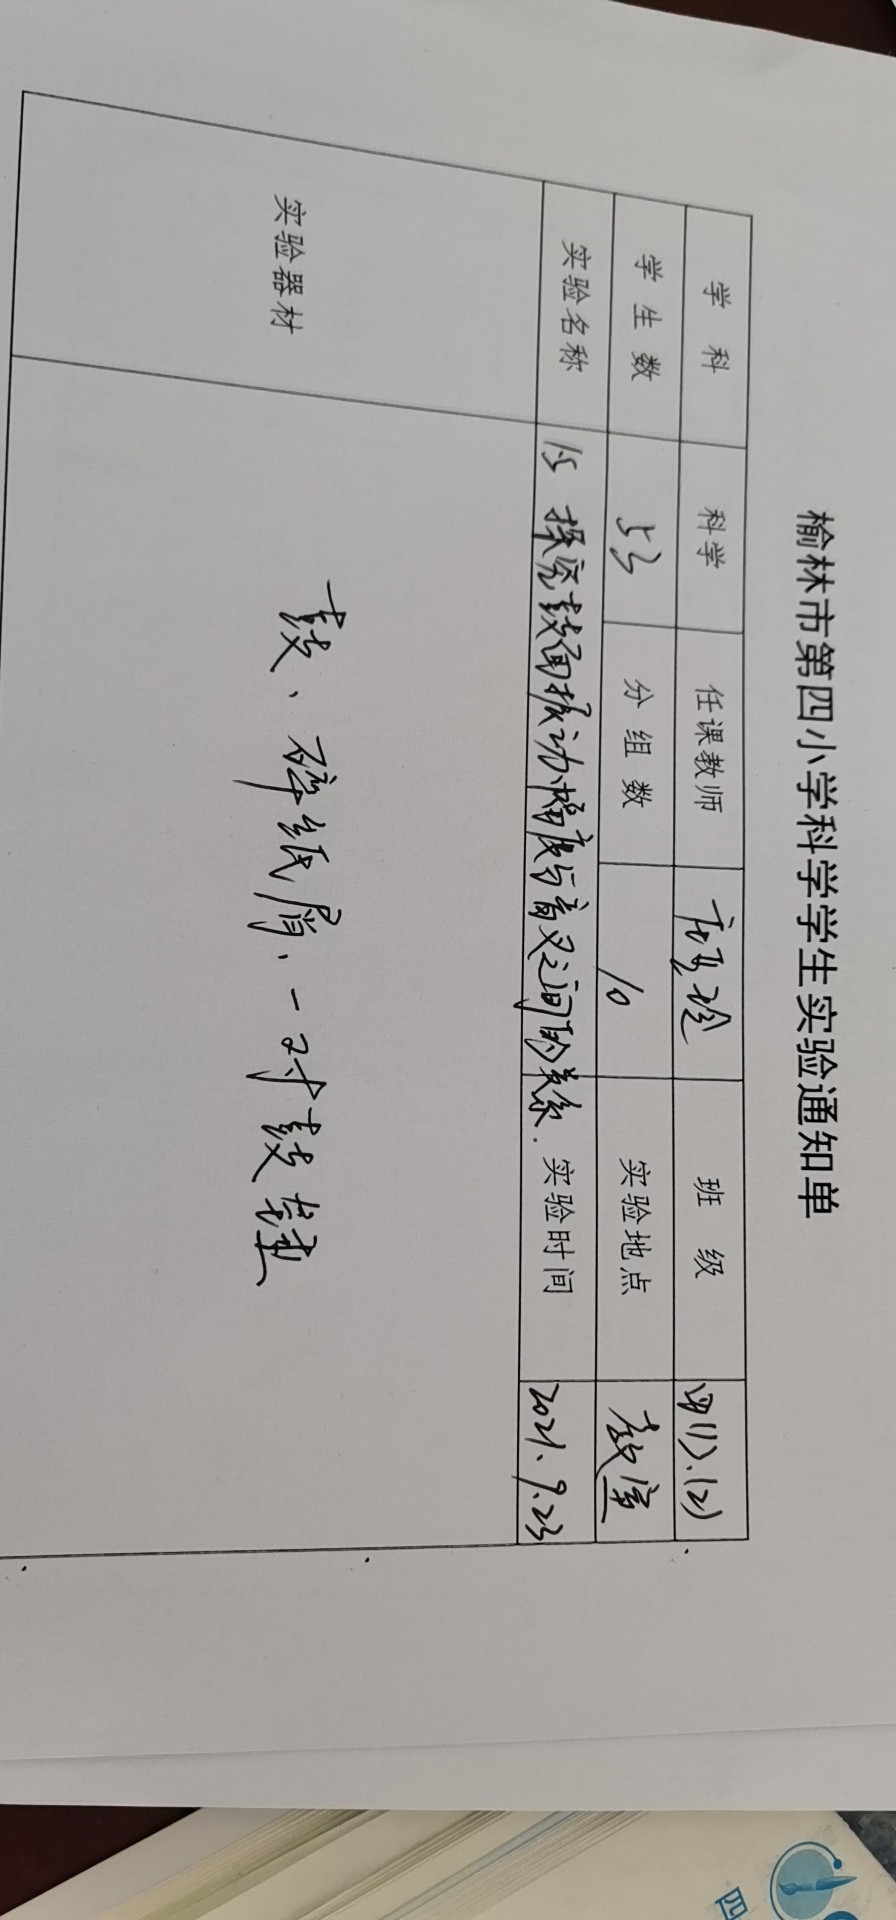 榆林市第四小学科学学生实验通知单
学科 科学 任课教师 班级 四(1).(2)
学生数 53 分组数 10 实验地点 教室
实验名称 15 探究鼓面振动幅度与音之间的关系. 实验时间 2021.9.23
实验器材 鼓、碎纸屑、一对鼓槌
四